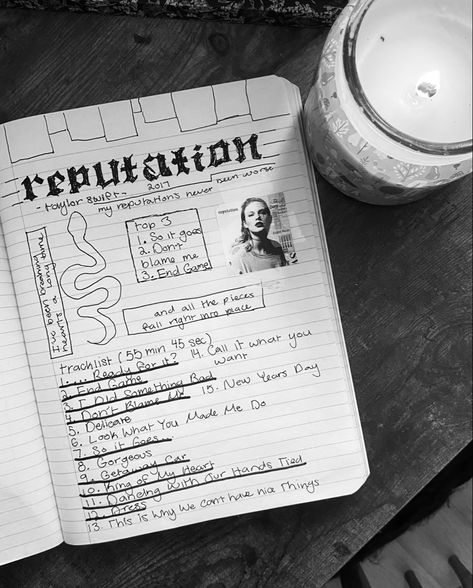 reputation
- taylor swift - 2017
my reputations never been worse
I've been breaking
hearts a long time
top 3
1. So it goes
2. Don't
blame me
3. End Game
reputation
and all the pieces
fall right into place
tracklist (55 min 45 sec)
1. ... Ready for it?
2. End Game
3. I Did Something Bad
4. Don't Blame Me
5. Delicate
6. Look What You Made Me Do
7. So it Goes...
8. Gorgeous
9. Getaway Car
10. King of My Heart
11. Dancing With Our Hands Tied
12. Dress
13. This is Why We Can't have nice Things
14. Call it what you
want
15. New Years Day